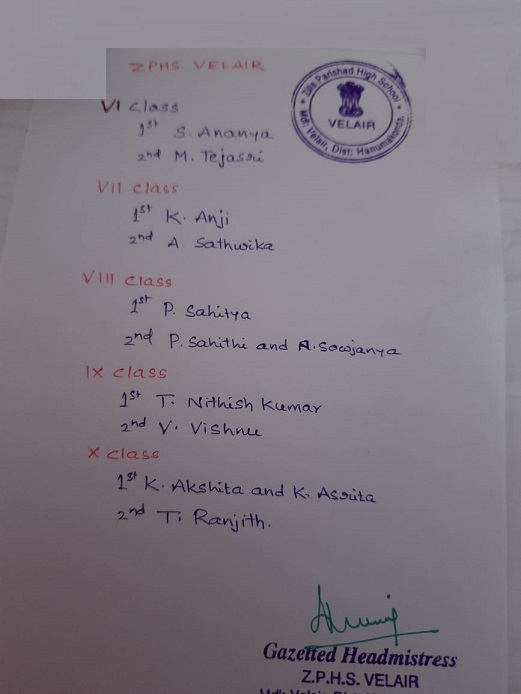 ZPHS VELAIR
Zilla Parishad High School
VELAIR
Mdl: Velair, Dist: Hanumakonda.
VI Class
1st S. Ananya
2nd M. Tejasri
VII Class
1st K. Anji
2nd A. Sathwika
VIII Class
1st P. Sahitya
2nd P. Sahithi and A. Sowjanya
IX Class
1st T. Nithish Kumar
2nd V. Vishnu
X Class
1st K. Akshita and K. Asrita
2nd T. Ranjith.
Gazetted Headmistress
Z.P.H.S. VELAIR